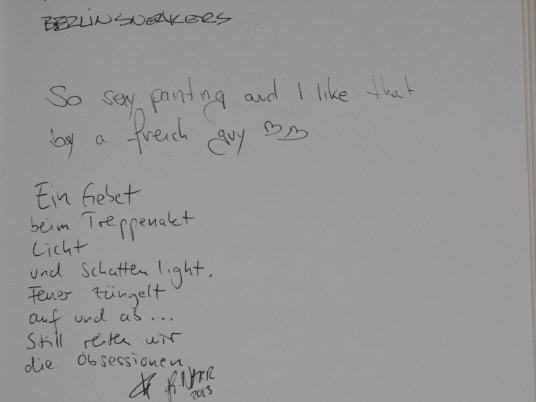 BERLINSNEAKERS
So sexy painting and I like that
by a french guy
Ein Gebet
beim Treppenakt
Licht
und Schatten light,
Feuer züngelt
auf und ab...
Still reiten wir
die Obsessionen
2013